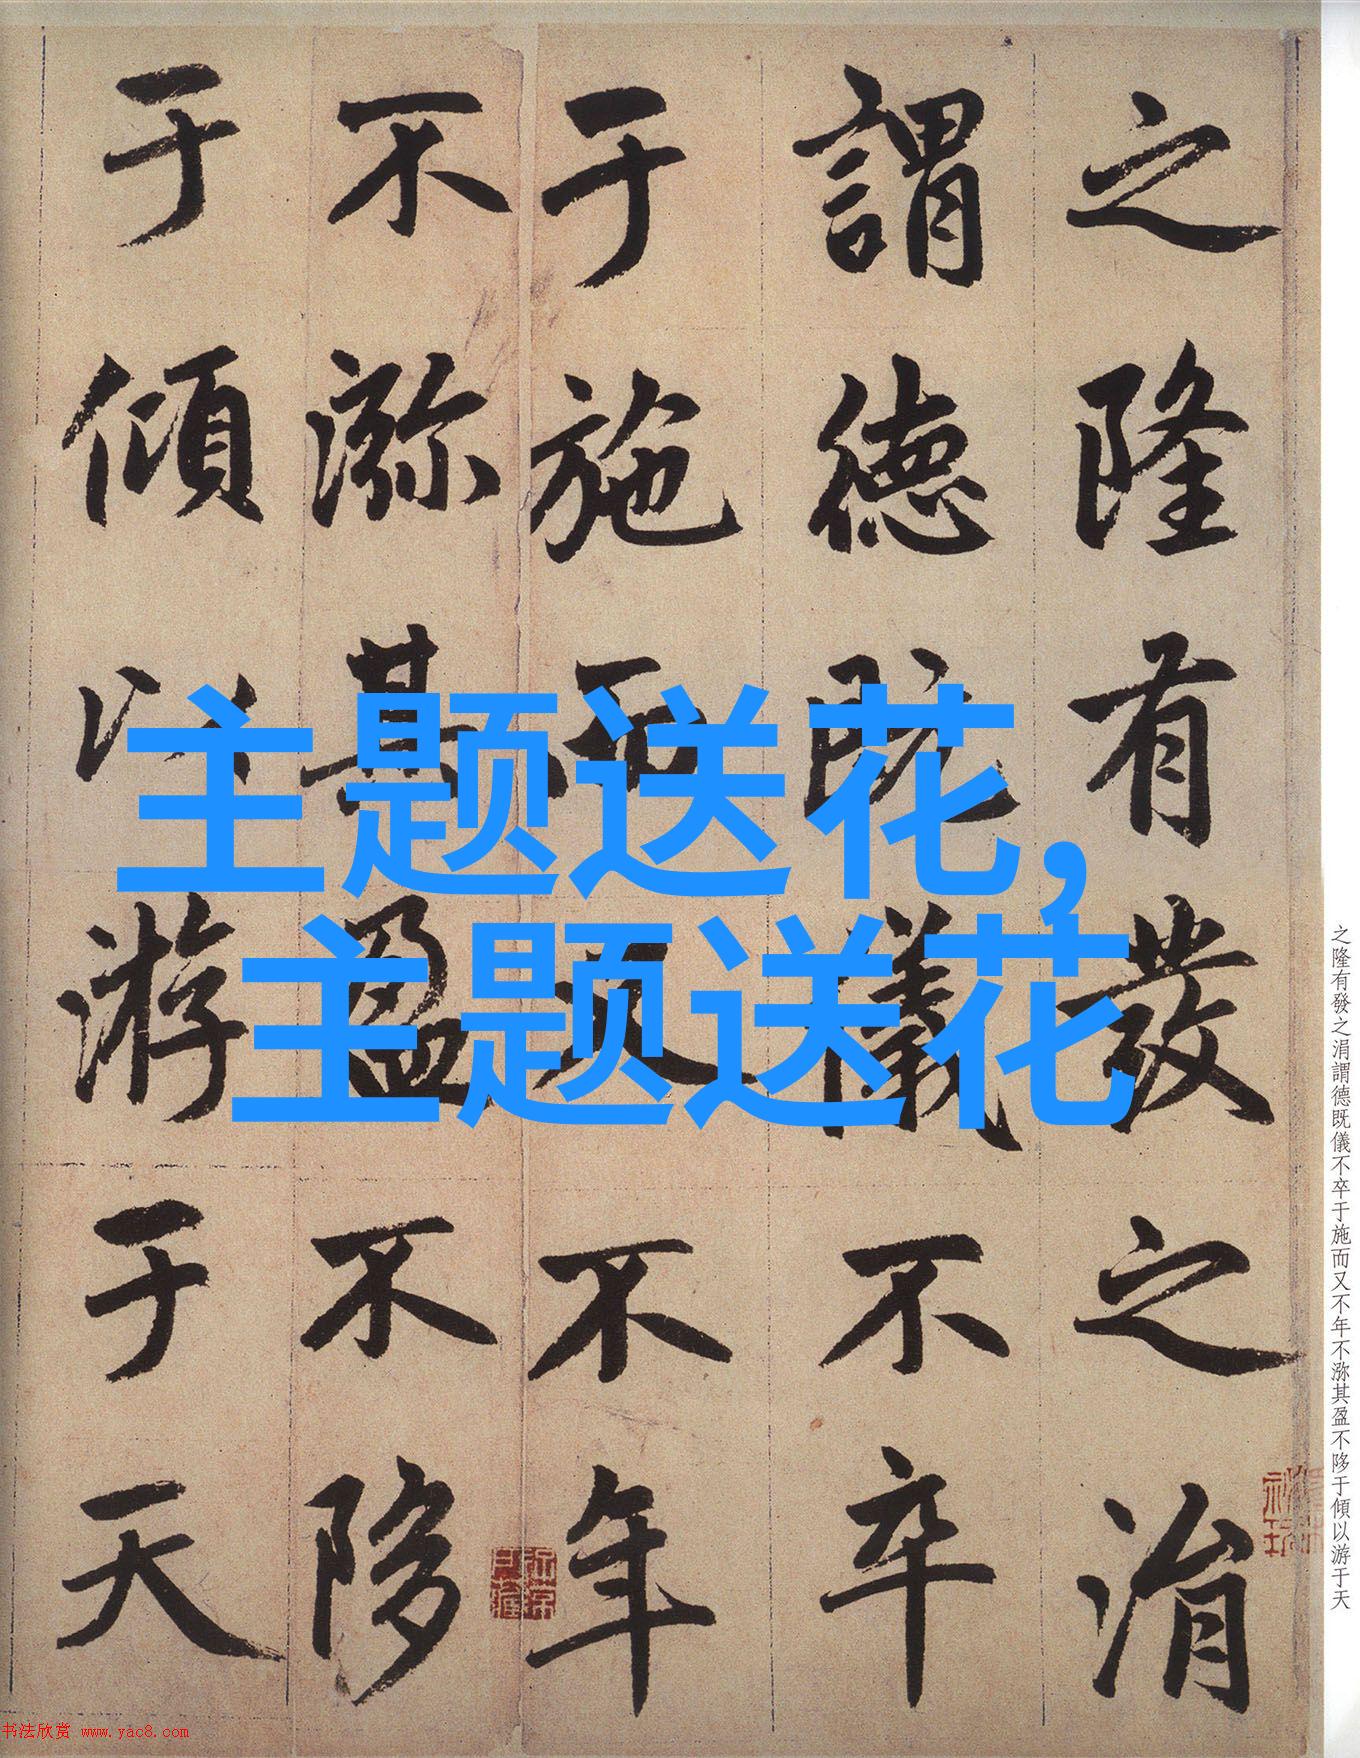 之隆有發之涓
謂德既儀不卒
于施而又不年
不㳽其盈不陊
于傾以游于天
主题送花,
主题送花
之隆有發之涓謂德既儀不卒于施而又不年不㳽其盈不陊于傾以游于天
书法欣赏 www.yac8.com